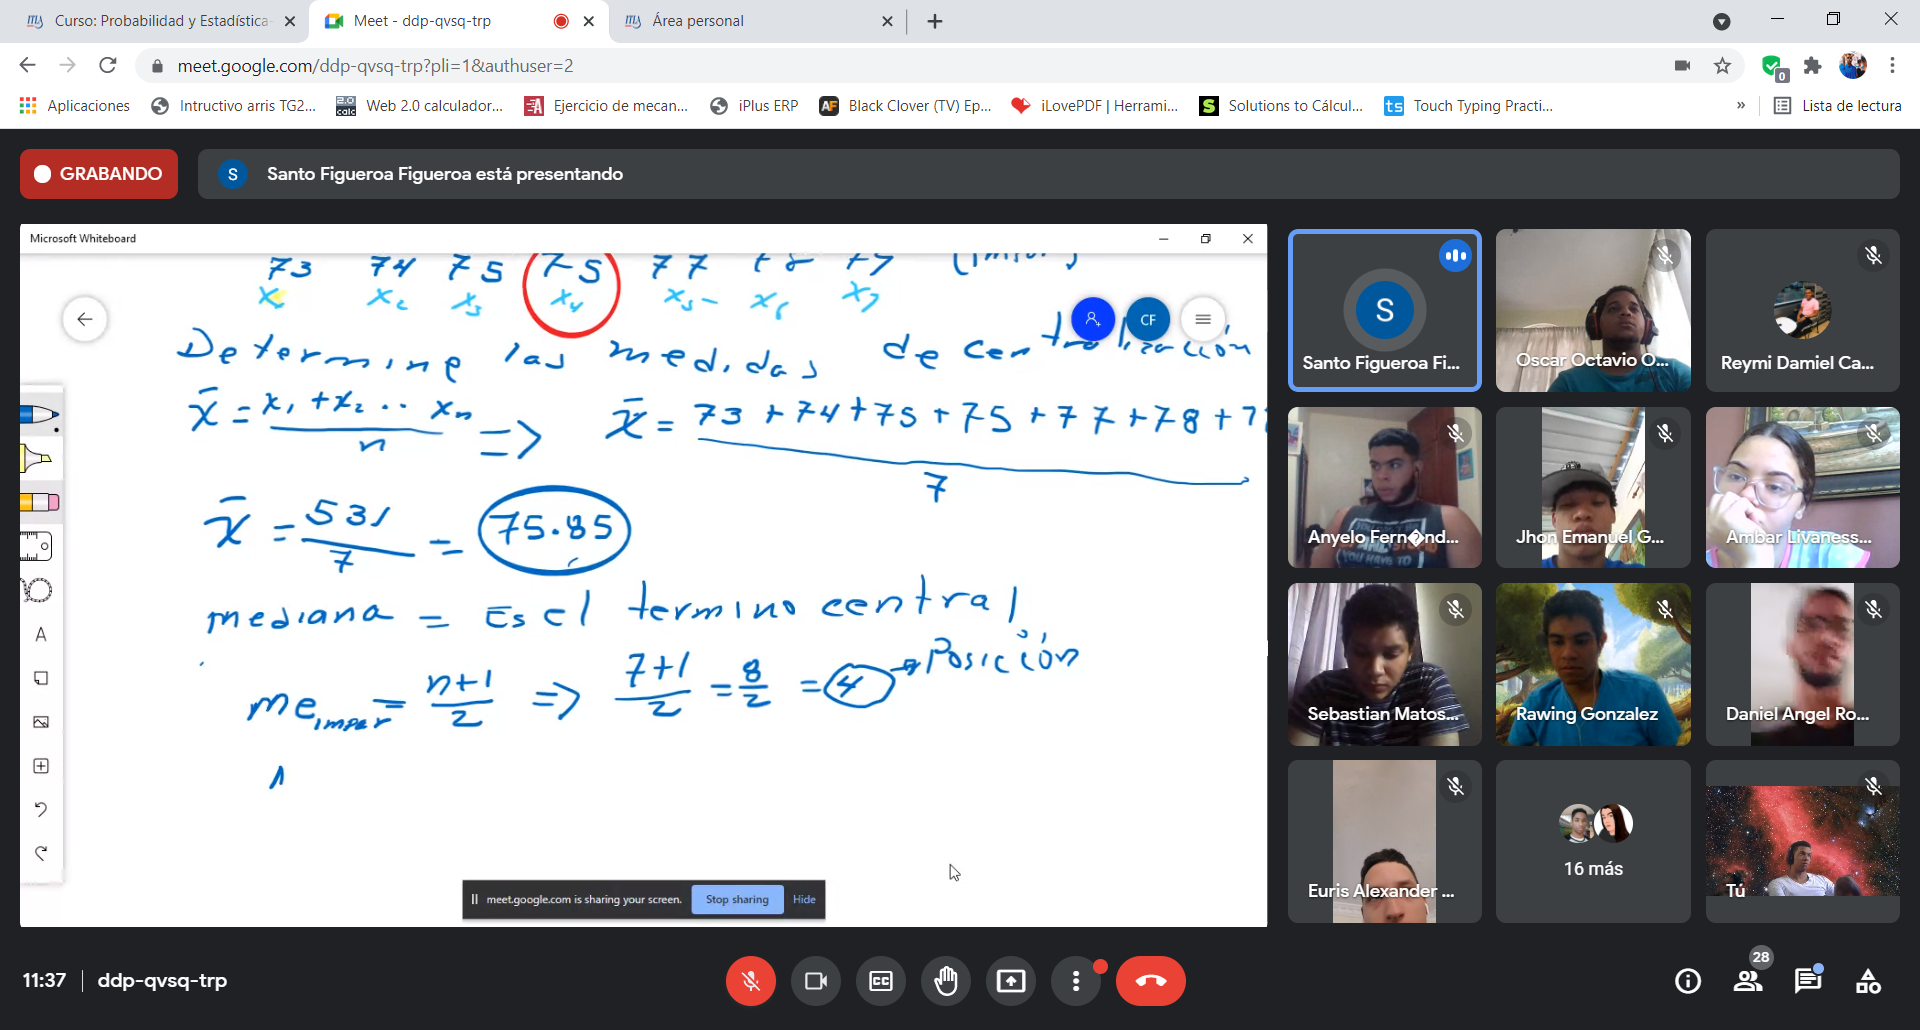 Curso: Probabilidad y Estadística-
Meet - ddp-qvsq-trp
Área personal
meet.google.com/ddp-qvsq-trp?pli=1&authuser=2
0
Aplicaciones
Intructivo arris TG2...
Web 2.0 calculador...
Ejercicio de mecan...
iPlus ERP
Black Clover (TV) Ep...
iLovePDF | Herrami...
Solutions to Cálcul...
Touch Typing Practi...
»
Lista de lectura
GRABANDO
S
Santo Figueroa Figueroa está presentando
Microsoft Whiteboard
73 74 75 75 77 78
x₂ x₃ x₄ x₅ x₆ x₇
CF
Determine las medidas de centralización
x̄ = x₁ + x₂ .. xₙ / n => x̄ = 73 + 74 + 75 + 75 + 77 + 78 + 7
7
x̄ = 531 / 7 = 75.85
mediana = Es el termino central
me impar = n+1 / 2 => 7+1 / 2 = 8 / 2 = 4 → Posición
meet.google.com is sharing your screen.
Stop sharing
Hide
S
Santo Figueroa Fi...
Oscar Octavio O...
Reymi Damiel Ca...
Anyelo Fern�nd...
Jhon Emanuel G...
Ambar Livaness...
Sebastian Matos...
Rawing Gonzalez
Daniel Angel Ro...
Euris Alexander ...
16 más
Tú
11:37
ddp-qvsq-trp
28